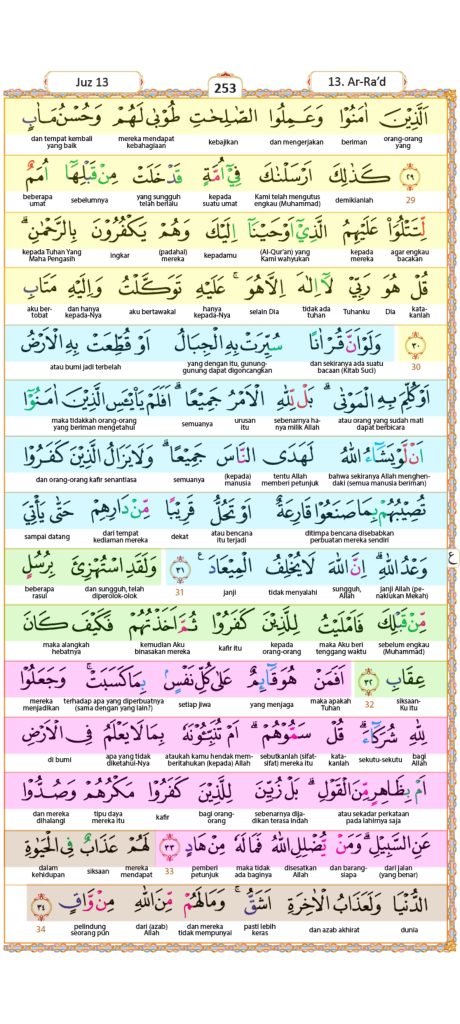 Juz 13
253
13. Ar-Ra’d
اَلَّذِيْنَ اٰمَنُوْا وَعَمِلُوا الصّٰلِحٰتِ طُوْبٰى لَهُمْ وَحُسْنُ مَاٰبٍ
orang-orang yang
beriman
dan mengerjakan
kebajikan
mereka mendapat kebahagiaan
dan tempat kembali yang baik
٢٩ كَذٰلِكَ اَرْسَلْنٰكَ فِيْٓ اُمَّةٍ قَدْ خَلَتْ مِنْ قَبْلِهَآ اُمَمٌ
29
demikianlah
Kami telah mengutus engkau (Muhammad)
kepada suatu umat
yang sungguh telah berlalu
sebelumnya
beberapa umat
لِّتَتْلُوَا۟ عَلَيْهِمُ الَّذِيْٓ اَوْحَيْنَآ اِلَيْكَ وَهُمْ يَكْفُرُوْنَ بِالرَّحْمٰنِۗ
agar engkau bacakan
kepada mereka
(Al-Qur'an) yang Kami wahyukan
kepadamu
(padahal) mereka
ingkar
kepada Tuhan Yang Maha Pengasih
قُلْ هُوَ رَبِّيْ لَآ اِلٰهَ اِلَّا هُوَۚ عَلَيْهِ تَوَكَّلْتُ وَاِلَيْهِ مَتَابِ
kata-kanlah
Dia
Tuhanku
tidak ada tuhan
selain Dia
hanya kepada-Nya
aku bertawakal
dan hanya kepada-Nya
aku ber-tobat
٣٠ وَلَوْ اَنَّ قُرْاٰنًا سُيِّرَتْ بِهِ الْجِبَالُ اَوْ قُطِّعَتْ بِهِ الْاَرْضُ
30
dan sekiranya ada suatu bacaan (Kitab Suci)
yang dengan itu, gunung-gunung dapat digoncangkan
atau bumi jadi terbelah
اَوْ كُلِّمَ بِهِ الْمَوْتٰىۗ بَلْ لِّلّٰهِ الْاَمْرُ جَمِيْعًاۗ اَفَلَمْ يَا۟يْـَٔسِ الَّذِيْنَ اٰمَنُوْٓا
atau orang yang sudah mati dapat berbicara
sebenarnya ha-nya milik Allah
urusan itu
semuanya
maka tidakkah orang-orang yang beriman mengetahui
اَنْ لَّوْ يَشَاۤءُ اللّٰهُ لَهَدَى النَّاسَ جَمِيْعًاۗ وَلَا يَزَالُ الَّذِيْنَ كَفَرُوْا
bahwa sekiranya Allah menghen-daki (semua manusia beriman)
tentu Allah memberi petunjuk
(kepada) manusia
semuanya
dan orang-orang kafir senantiasa
تُصِيْبُهُمْ بِمَا صَنَعُوْا قَارِعَةٌ اَوْ تَحُلُّ قَرِيْبًا مِّنْ دَارِهِمْ حَتّٰى يَأْتِيَ
ditimpa bencana disebabkan perbuatan mereka sendiri
atau bencana itu terjadi
dekat
dari tempat kediaman mereka
sampai datang
وَعْدُ اللّٰهِۗ اِنَّ اللّٰهَ لَا يُخْلِفُ الْمِيْعَادَ ٣١ وَلَقَدِ اسْتُهْزِئَ بِرُسُلٍ
janji Allah (pe-naklukan Mekah)
sungguh, Allah
tidak menyalahi
janji
31
dan sungguh, telah diperolok-olok
beberapa rasul
ع
مِّنْ قَبْلِكَ فَاَمْلَيْتُ لِلَّذِيْنَ كَفَرُوْا ثُمَّ اَخَذْتُهُمْ فَكَيْفَ كَانَ
sebelum engkau (Muhammad)
maka Aku beri tenggang waktu
kepada orang-orang
kafir itu
kemudian Aku binasakan mereka
maka alangkah hebatnya
عِقَابِ ٣٢ اَفَمَنْ هُوَ قَاۤىِٕمٌ عَلٰى كُلِّ نَفْسٍۢ بِمَا كَسَبَتْۚ وَجَعَلُوْا
siksaan-Ku itu
32
maka apakah Tuhan
yang menjaga
setiap jiwa
terhadap apa yang diperbuatnya (sama dengan yang lain?)
mereka menjadikan
لِلّٰهِ شُرَكَاۤءَۗ قُلْ سَمُّوْهُمْۗ اَمْ تُنَبِّـُٔوْنَهٗ بِمَا لَا يَعْلَمُ فِى الْاَرْضِ
bagi Allah
sekutu-sekutu
kata-kanlah
sebutkanlah (sifat-sifat) mereka itu
ataukah kamu hendak mem-beritahukan (kepada) Allah
apa yang tidak diketahui-Nya
di bumi
اَمْ بِظَاهِرٍ مِّنَ الْقَوْلِۗ بَلْ زُيِّنَ لِلَّذِيْنَ كَفَرُوْا مَكْرُهُمْ وَصُدُّوْا
atau sekadar perkataan pada lahirnya saja
sebenarnya dija-dikan terasa indah
bagi orang-orang
kafir
tipu daya mereka itu
dan mereka dihalangi
عَنِ السَّبِيْلِۗ وَمَنْ يُّضْلِلِ اللّٰهُ فَمَا لَهٗ مِنْ هَادٍ ٣٣ لَهُمْ عَذَابٌ فِى الْحَيٰوةِ
dari jalan (yang benar)
dan barang-siapa
disesatkan Allah
maka tidak ada baginya
pemberi petunjuk
33
mereka mendapat
siksaan
dalam kehidupan
الدُّنْيَا وَلَعَذَابُ الْاٰخِرَةِ اَشَقُّۚ وَمَا لَهُمْ مِّنَ اللّٰهِ مِنْ وَّاقٍ ٣٤
dunia
dan azab akhirat
pasti lebih keras
dan mereka tidak mempunyai
dari (azab) Allah
pelindung seorang pun
34